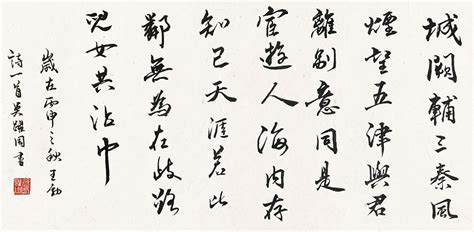 城闕輔三秦風
煙望五津與君
離別意同是
宦遊人海內存
知己天涯若比
鄰無為在歧路
兒女共沾巾
歲在丙申之秋王勃
詩一首吳
書